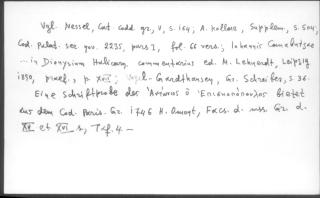 Vgl. Nessel, Cat. codd. gr., V, s. 164; A. Kollar, Supplem., s. 504;
Cod. Palat. see. gov. 2235, pars I, fol. 66 vers.; Iohannis Canabutzae
... in Dionysium Halicarn. commentarius ed. M. Lehnerdt, Leipzig
1890, praef., p. XVI; Vogel-Gardthausen, Gr. Schreiber, s. 36.
Eine Schriftprobe des Ἀντώνιος ὁ Ἐπισκοπόπουλος bietet
aus dem Cod. Paris. Gr. 1746 H. Omont, Facs. d. mss. Gr. d.
XV et XVI s., Taf. 4. —